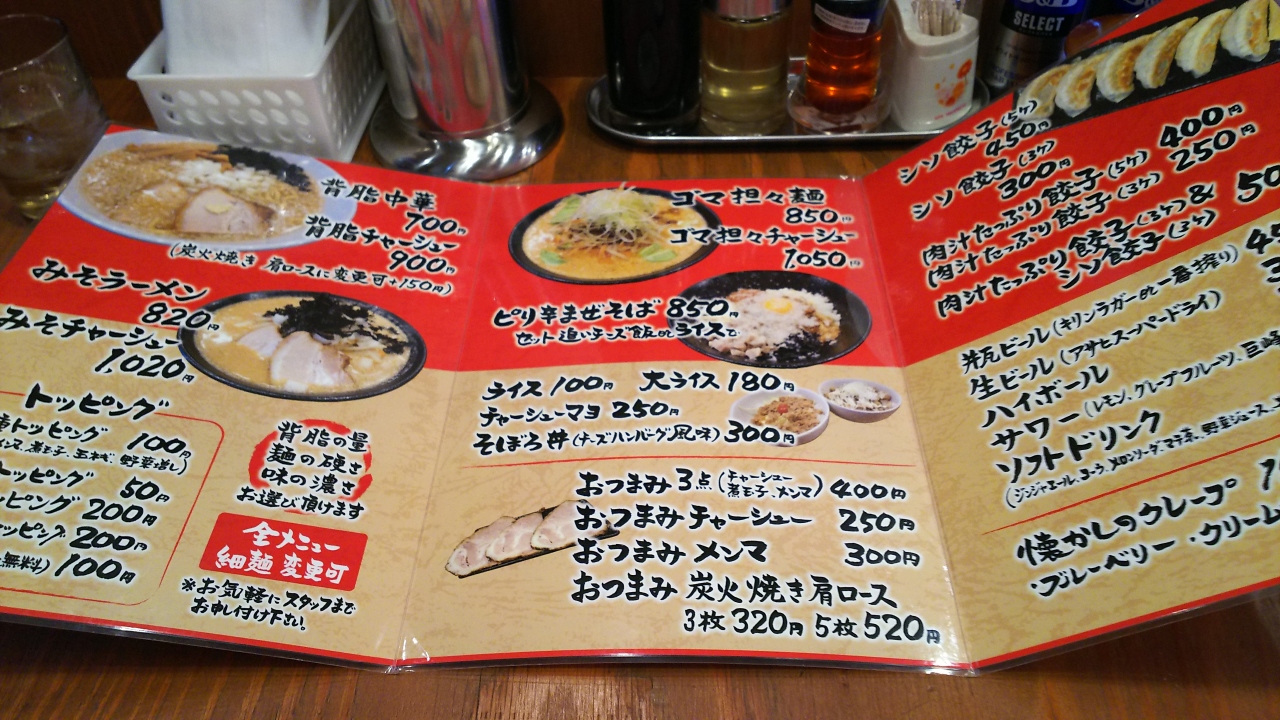 背脂中華
700円
背脂チャーシュー
900円
(炭火焼き 肩ロースに変更可+150円)
みそラーメン
820円
みそチャーシュー
1,020円
トッピング
トッピング 100円
煮玉子、玉ねぎ 野菜増し)
トッピング 50円
ッピング 200円
トッピング 200円
無料) 100円
背脂の量
麺の硬さ
味の濃さ
お選び頂けます
全メニュー
細麺 変更可
※お気軽にスタッフまで
お申し付け下さい。
ゴマ担々麺
850円
ゴマ担々チャーシュー
1,050円
ピリ辛まぜそば 850円
セット追い チーズ飯orライスで
ライス 100円 大ライス 180円
チャーシューマヨ 250円
そぼろ丼(チーズハンバーグ風味)300円
おつまみ3点(チャーシュー 煮玉子、メンマ)400円
おつまみチャーシュー 250円
おつまみメンマ 300円
おつまみ炭火焼き肩ロース
3枚320円 5枚520円
SELECT
シソ餃子(5ケ)
450円
シソ餃子(3ケ)
300円
肉汁たっぷり餃子(5ケ) 400円
肉汁たっぷり餃子(3ケ) 250円
肉汁たっぷり餃子(3ケ)&
シソ餃子(3ケ)
瓶ビール(キリンラガーor一番搾り)
生ビール(アサヒスーパードライ)
ハイボール
サワー(レモン、グレープフルーツ、巨峰
ソフトドリンク
(ジンジャエール、コーラ、メロンソーダ、マテ茶、野菜ジュース
懐かしのクレープ
・ブルーベリー ・クリーム